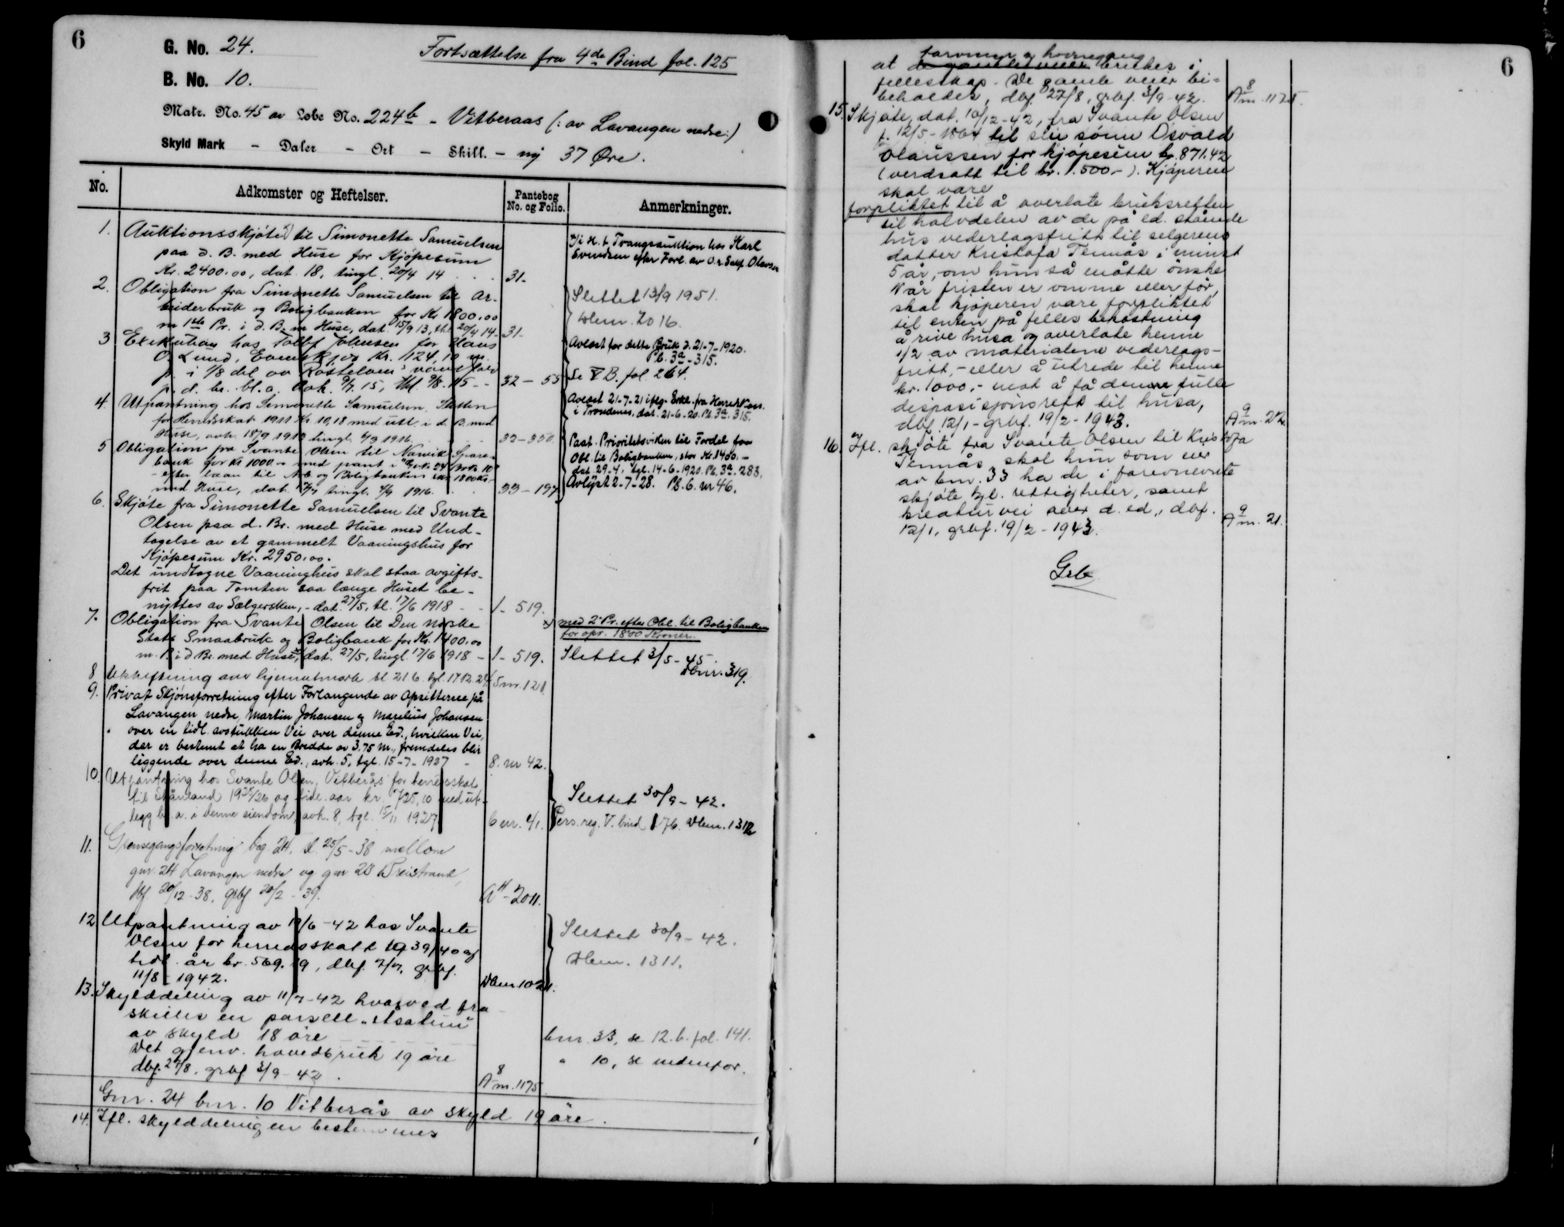 6
G. No. 24.
Fortsættelse fra 4de Bind fol. 125
B. No. 10.
Matr. No. 45 av Løbe No. 224b - Vitberaas (: av Lavangen nedre :)
Skyld Mark - Daler - Ort - Skill. - ny 37 Øre.
No.
Adkomster og Heftelser.
Pantebog No. og Folio.
Anmerkninger.
1. Auktionsskjøte til Simonette Samuelsen
paa d. B. med Huse for Kjøpesum
Kr. 2400.00, dat. 18, tingl. 20/4 14 31.
Tvangsauktion hos Karl
Evendsen efter Forl. av O.r.Sakf. Olavson
2. Obligation fra Simonette Samuelsen til Ar-
beiderbruk og Boligbanken for Kr 1800.00
m 1ste Pr. i d. B. m Huse, dat 15/9 13, tl. 20/4 14. 31.
Slettet 13/9 1951.
Dbnr. 2016.
3 Exekution hos Rolf Johnsen for Hans
O. Lund, Evenskjer Kr. 1124.10 m.
p. i 1/8 del av
p. d. br. bl. a. 15, 15 - - 32 - 55
Avløst for dette Bruk d. 21-7-1920.
Pb. 3a - 315.
Se V B. fol 264.
4. Utpantning hos Simonette Samuelsen
for Herredsskat Kr. 10,18 med utl. i d. B. med
Huse, avh. 18/9 1915 tingl. 4/3 1916. 33-350
Avløst 21-7-21 iflg. Erkl. fra Herredskas.
i Trondenes, dat. 21-6-20. Pb. 3a. 315.
5 Obligation fra Svante Olsen til Narvik Spare-
bank for kr 1000.- med pant i Gr. 24 br. 10
efter laan til Arb. og Boligbanken 1800 Kr.
med Huse, dat. tingl. 1916. 33-197
Paat. Prioritetsviken til Fordel for
Obl. til Boligbanken, stor Kr. 1400.-
dat. 29.4, tgl. 14-6-1920. Pb. 3a. 283.
Avlyst 2-7-28. Pb. 6. nr 46.
6. Skjøte fra Simonette Samuelsen til Svante
Olsen paa d. Br. med Huse med Und-
tagelse av et gammelt Vaaningshus for
Kjøpesum Kr. 2950.00.
Det undtagne Vaaninghus skal staa avgifts-
frit paa Tomten saa længe Huset be-
nyttes av Sælgersken, - dat 27/5, tl. 17/6 1918 - - 1-519.
7. Obligation fra Svante Olsen til Den norske
Stats Smaabruk og Boligbank for Kr. 1400.00
m. Pr. i d Br. med Huse, dat. 27/5, tingl 17/6 1918 - 1-519.
med 2 Pr. efter Obl. til Boligbanken
for opr. 1800 Kroner.
Slettet 3/5-45.
Dbnr. 319.
8 Utskiftning av hjemutmark 5 nr. 121
9. Privat Skjønsforretning efter Forlangende av Opsitterne på
Lavangen nedre, Martin Johansen og Magelius Johansen
over en tidl. avstukken Vei over denne Ed., hvilken Vei,
der er bestemt at ha en Bredde av 3,75 m., fremdeles blir
liggende over denne Ed., avh. 5, tgl. 15-7-1927 - 8. nr 42.
10. Utpantning hos Svante Olsen, Vitberås for herredsskat
til Skånland 1925/26 og tidl. aar kr. 1725,10 med ut-
legg bl. a. i denne eiendom, avh. 8, tgl. 15/11 1927 6 nr. 41.
Slettet 30/9-42.
Pers. reg. V. bind 176. Dbnr. 1312
11. Grensegangsforretning bog 24, d. 25/5-38 mellom
gnr. 24 Lavangen nedre og gnr 23 Breistrand,
dbf 20/12-38, grbf 20/2-39. A4-2011.
12. Utpantning av 19/6-42 hos Svante
Olsen for herredsskatt 1939/40 og
tidl. år kr. 569.19, dbf 7/7, grbf.
11/8-1942. Dbnr 1021.
Slettet 30/9-42.
Dbnr. 1311.
13. Skylddeling av 11/7-42 hvorved fra
skilles en parsell
av skyld 18 øre
Det gjenv. hovedbruk 19 øre
dbf. 27/8, grbf 3/9-42. A8 nr. 1175
bnr. 33, se 12. b. fol. 141.
" 10, se nedenfor.
Gnr. 24 bnr. 10 Vitberås av skyld 19 øre.
14. Ifl. skylddelingen bestemmes
6
at brukes i
fellesskap. De gamle veier bi-
beholdes, dbf 27/8, grbf. 3/9-42. A8 nr. 1175.
15. Skjøte, dat. 10/12-42, fra Svante Olsen
f. 12/5-1864 til sin sønn Osvald
Olaussen for kjøpesum kr. 871.42
(verdsatt til kr. 1.500.-). Kjøperen
skal være
forpliktet til å overlate bruksretten
til halvdelen av de på ed. stående
hus vederlagsfritt til selgerens
datter Kristofa Tennås i minst
5 år, om hun så måtte ønske
Når fristen er omme eller før,
skal kjøperen være forpliktet
til enten på felles bekostning
å rive husa og overlate henne
1/2 av materialene vederlags-
fritt, - eller å utrede til henne
kr. 1000.- mot å få den fulle
disposisjonsrett til husa,
dbf 12/1-grbf. 19/2-1943. A9 nr. 22
16. Ifl. skjøte fra Svante Olsen til Kristofa
Tennås skal hun som eier
av bnr. 33 ha de i forannevnte
skjøte gjl. rettigheter, samt
kreaturvei over d. ed., dbf.
12/1, grbf. 19/2-1943. A9 nr. 21.